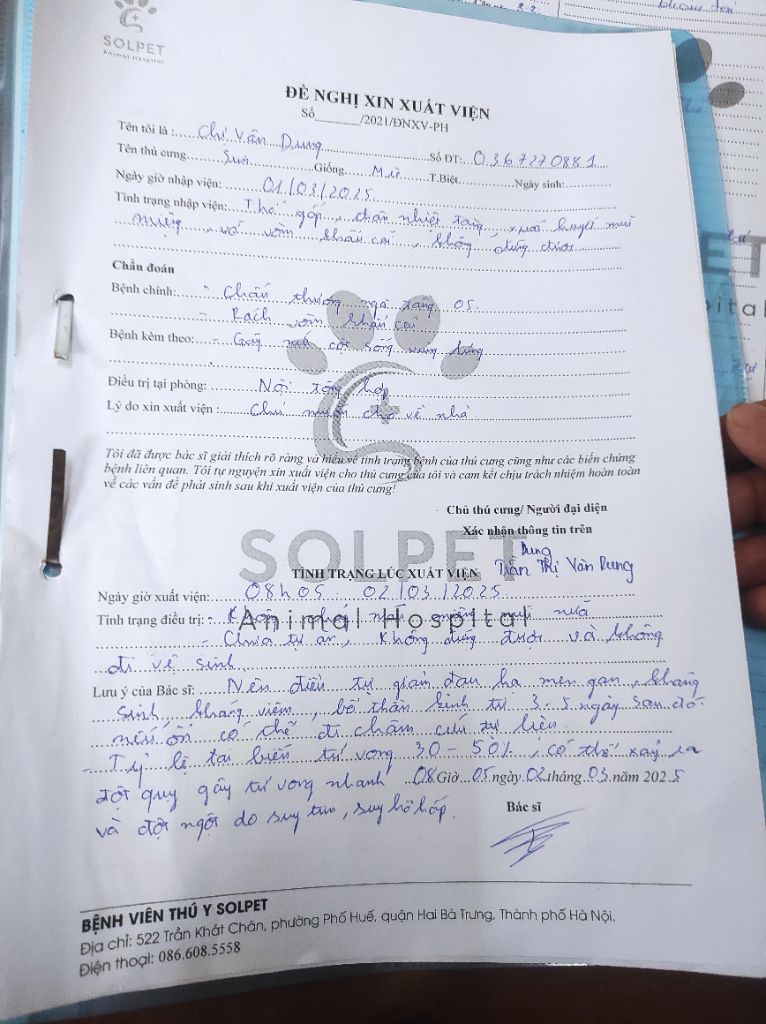 SOLPET
Animal Hospital
ĐỀ NGHỊ XIN XUẤT VIỆN
Số______/2021/ĐNXV-PH
Tên tôi là : Chị Vân Dung Số ĐT: 0367270881
Tên thú cưng Giống Mèo T.Biệt Ngày sinh:
Ngày giờ nhập viện: 01/03/2025
Tình trạng nhập viện: Thở gấp, thân nhiệt tăng, xuất huyết mũi
miệng, vỡ vòm khẩu cái, không đứng được
Chẩn đoán
Bệnh chính: - Chấn thương ngã tầng 05
- Rách vòm khẩu cái
Bệnh kèm theo: - Gãy cột sống vùng lưng
Điều trị tại phòng: Nội tổng hợp
Lý do xin xuất viện : Chủ muốn cho về nhà
Tôi đã được bác sĩ giải thích rõ ràng và hiểu về tình trạng bệnh của thú cưng cũng như các biến chứng
bệnh liên quan. Tôi tự nguyện xin xuất viện cho thú cưng của tôi và cam kết chịu trách nhiệm hoàn toàn
về các vấn đề phát sinh sau khi xuất viện của thú cưng!
Chủ thú cưng/ Người đại diện
Xác nhận thông tin trên
Dung
Trần Thị Vân Dung
SOLPET
Animal Hospital
TÌNH TRẠNG LÚC XUẤT VIỆN
Ngày giờ xuất viện: 08h05 02/03/2025
Tình trạng điều trị: - máu miệng mũi nữa
- Chưa tự ăn, không đứng được và không
đi vệ sinh
Lưu ý của Bác sĩ: Nên điều trị giảm đau hạ men gan, kháng
sinh, kháng viêm, bổ thần kinh từ 3-5 ngày sau đó
nếu ổn có thể đi châm cứu trị liệu
- Tỷ lệ tai biến tử vong 30-50%, có thể xảy ra
đột quỵ gây tử vong nhanh
và đột ngột do suy tim, suy hô hấp.
08 Giờ 05 ngày 02 tháng 03 năm 2025
Bác sĩ
BỆNH VIÊN THÚ Y SOLPET
Địa chỉ: 522 Trần Khát Chân, phường Phố Huế, quận Hai Bà Trưng, Thành phố Hà Nội.
Điện thoại: 086.608.5558